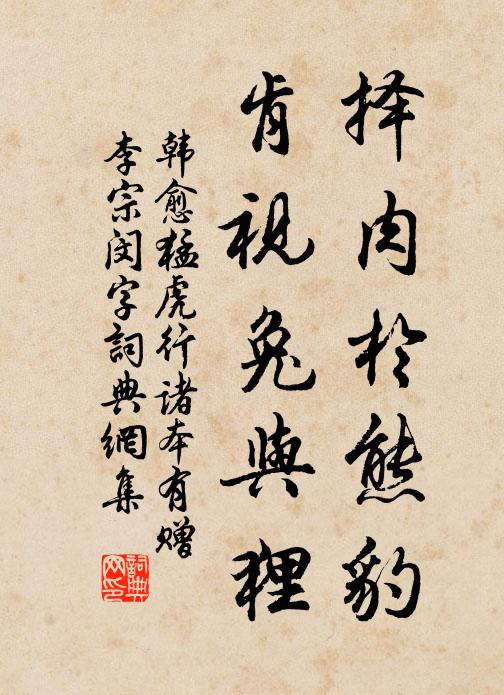 择肉於熊豹
肯视兔與狸
韩愈猛虎行诸本有赠
李宗闵字詞典網集
詞典网印